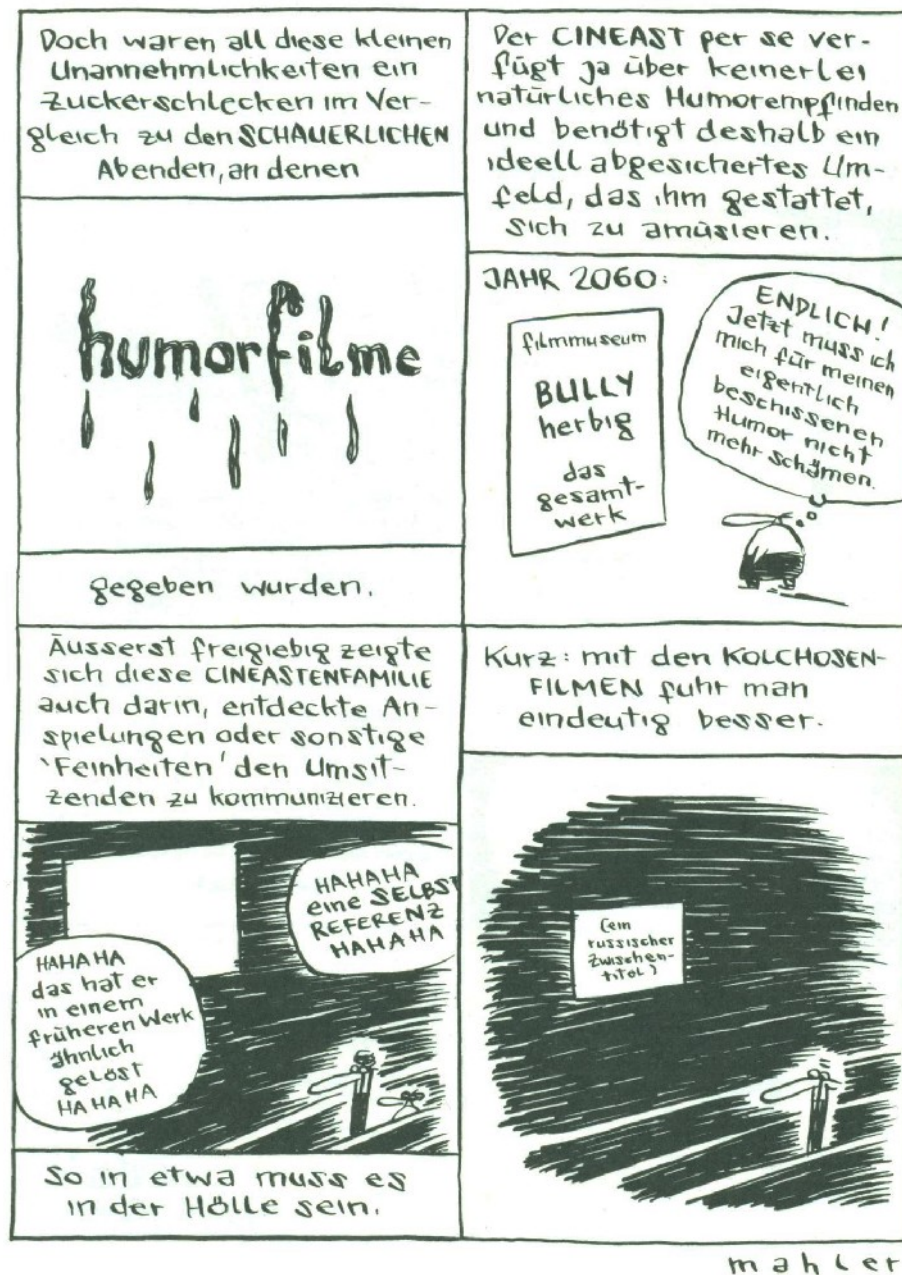 Doch waren all diese kleinen
Unannehmlichkeiten ein
Zuckerschlecken im Ver-
gleich zu den SCHAUERLICHEN
Abenden, an denen
humorfilme
gegeben wurden.
Der CINEAST per se ver-
fügt ja über keinerlei
natürliches Humorempfinden
und benötigt deshalb ein
ideell abgesichertes Um-
feld, das ihm gestattet,
sich zu amüsieren.
JAHR 2060:
filmmuseum
BULLY
herbig
das
gesamt-
werk
ENDLICH!
Jetzt muss ich
mich für meinen
eigentlich
beschissenen
Humor nicht
mehr schämen.
Äusserst freigiebig zeigte
sich diese CINEASTENFAMILIE
auch darin, entdeckte An-
spielungen oder sonstige
'Feinheiten' den Umsit-
zenden zu kommunizieren.
HAHAHA
eine SELBST
REFERENZ
HAHAHA
HAHAHA
das hat er
in einem
früheren Werk
ähnlich
gelöst
HAHAHA
So in etwa muss es
in der Hölle sein.
Kurz: mit den KOLCHOSEN-
FILMEN fuhr man
eindeutig besser.
(ein
russischer
Zwischen-
titel)
mahler